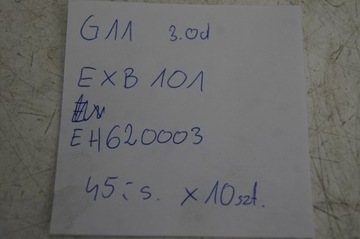 G11 3.0d
EXB 101
EH620003
45,- s. x 10 szt.